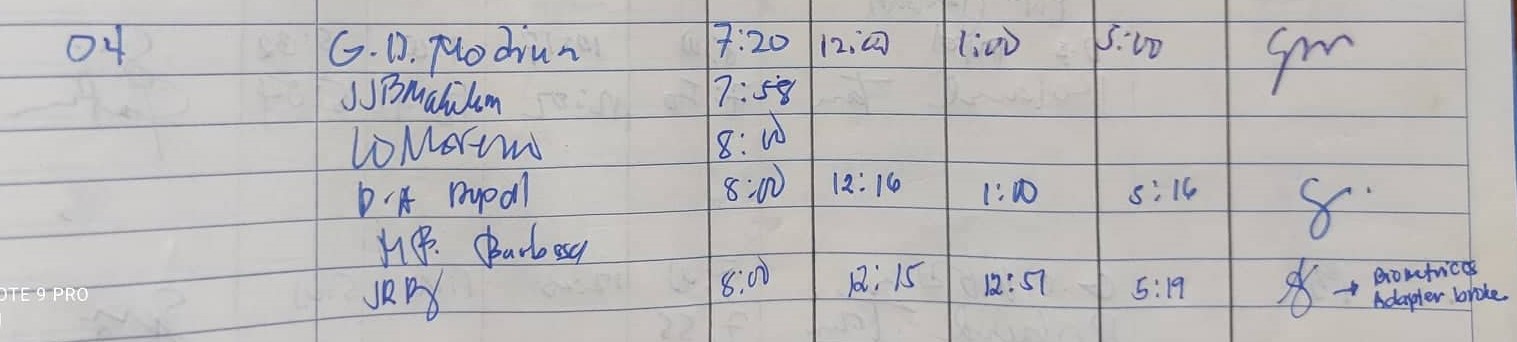 04 G.D. Modiun 7:20 12:00 1:00 5:00 gm
JJB 7:58
LO Moreno 8:00
D.A 8:00 12:16 1:00 5:16
M.B. Barbosa
JRB 8:00 12:15 12:57 5:19 → Biometrics
Adapter broke.
OTE 9 PRO